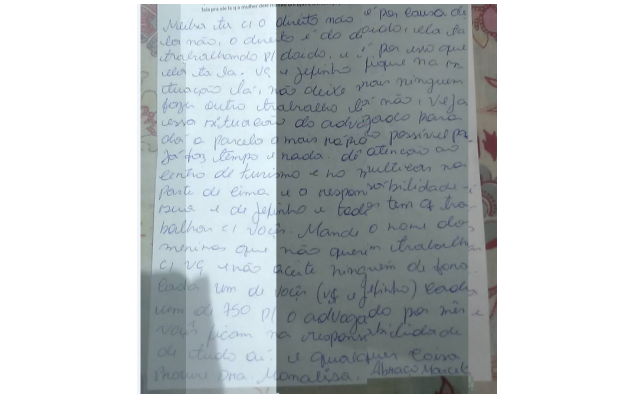 fala pra ele la q a mulher dele
Meiha ta c/ o direito não é por causa de
loi não, o direito é do doido, ela ta
trabalhando p/ doido, e é por isso que
ela ta la. vç e jefinho fique na si
tuação lá, não deixe mais ninguem
fazer outro trabalho lá não, veja
essa situação do advogado para
doi a parcelo o mais rápido possível pq
já faz tempo e nada. dê atenção ao
centro de turismo e no multicor na
parte de cima e a responsabilidade é
sua e de jefinho e todos tem q tra
balhar c/ voçês. Mande o nome dos
meninos que não querem trabalhar
c/ vç e não aceite ninguem de fora.
cada um de voçês (vç e jefinho) cada
um dê 750 p/ o advogado por mês e
voçês ficam na responsabilidade
de tudo aí. e qualquer coisa
procure Dra. Monalisa. Abraço